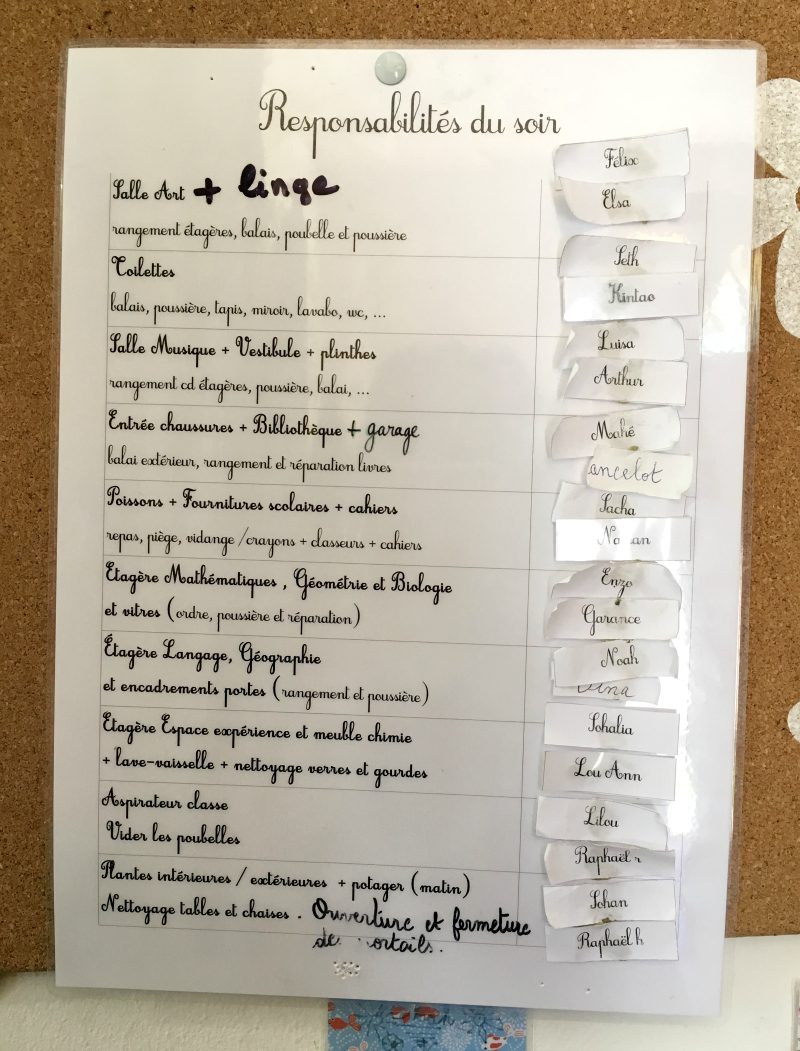 Responsabilités du soir
Félix
Salle Art + linge
Elsa
rangement étagères, balais, poubelle et poussière
Seth
Toilettes
Kintao
balais, poussière, tapis, miroir, lavabo, wc, ...
Luisa
Salle Musique + Vestibule + plinthes
Arthur
rangement cd étagères, poussière, balai, ...
Entrée chaussures + Bibliothèque + garage
Mahé
balai extérieur, rangement et réparation livres
ancelot
Poissons + Fournitures scolaires + cahiers
Sacha
repas, piège, vidange /crayons + classeurs + cahiers
Etagère Mathématiques, Géométrie et Biologie
Enzo
et vitres (ordre, poussière et réparation)
Garance
Étagère Langage, Géographie
Noah
et encadrements portes (rangement et poussière)
Etagère Espace expérience et meuble chimie
Sohalia
+ lave-vaisselle + nettoyage verres et gourdes
Lou Ann
Aspirateur classe
Lilou
Vider les poubelles
Raphaël r
Plantes intérieures / extérieures + potager (matin)
Sohan
Nettoyage tables et chaises . Ouverture et fermeture
Raphaël h